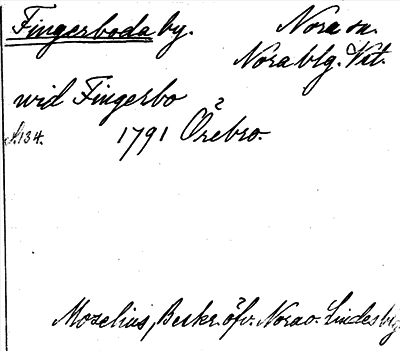 Fingerboda by. Nora sn.
Nora blg. Vst.
wid Fingerbo
s. 134. 1791 Örebro.
Mozelius, Beskr. öfv. Nora o. Lindes